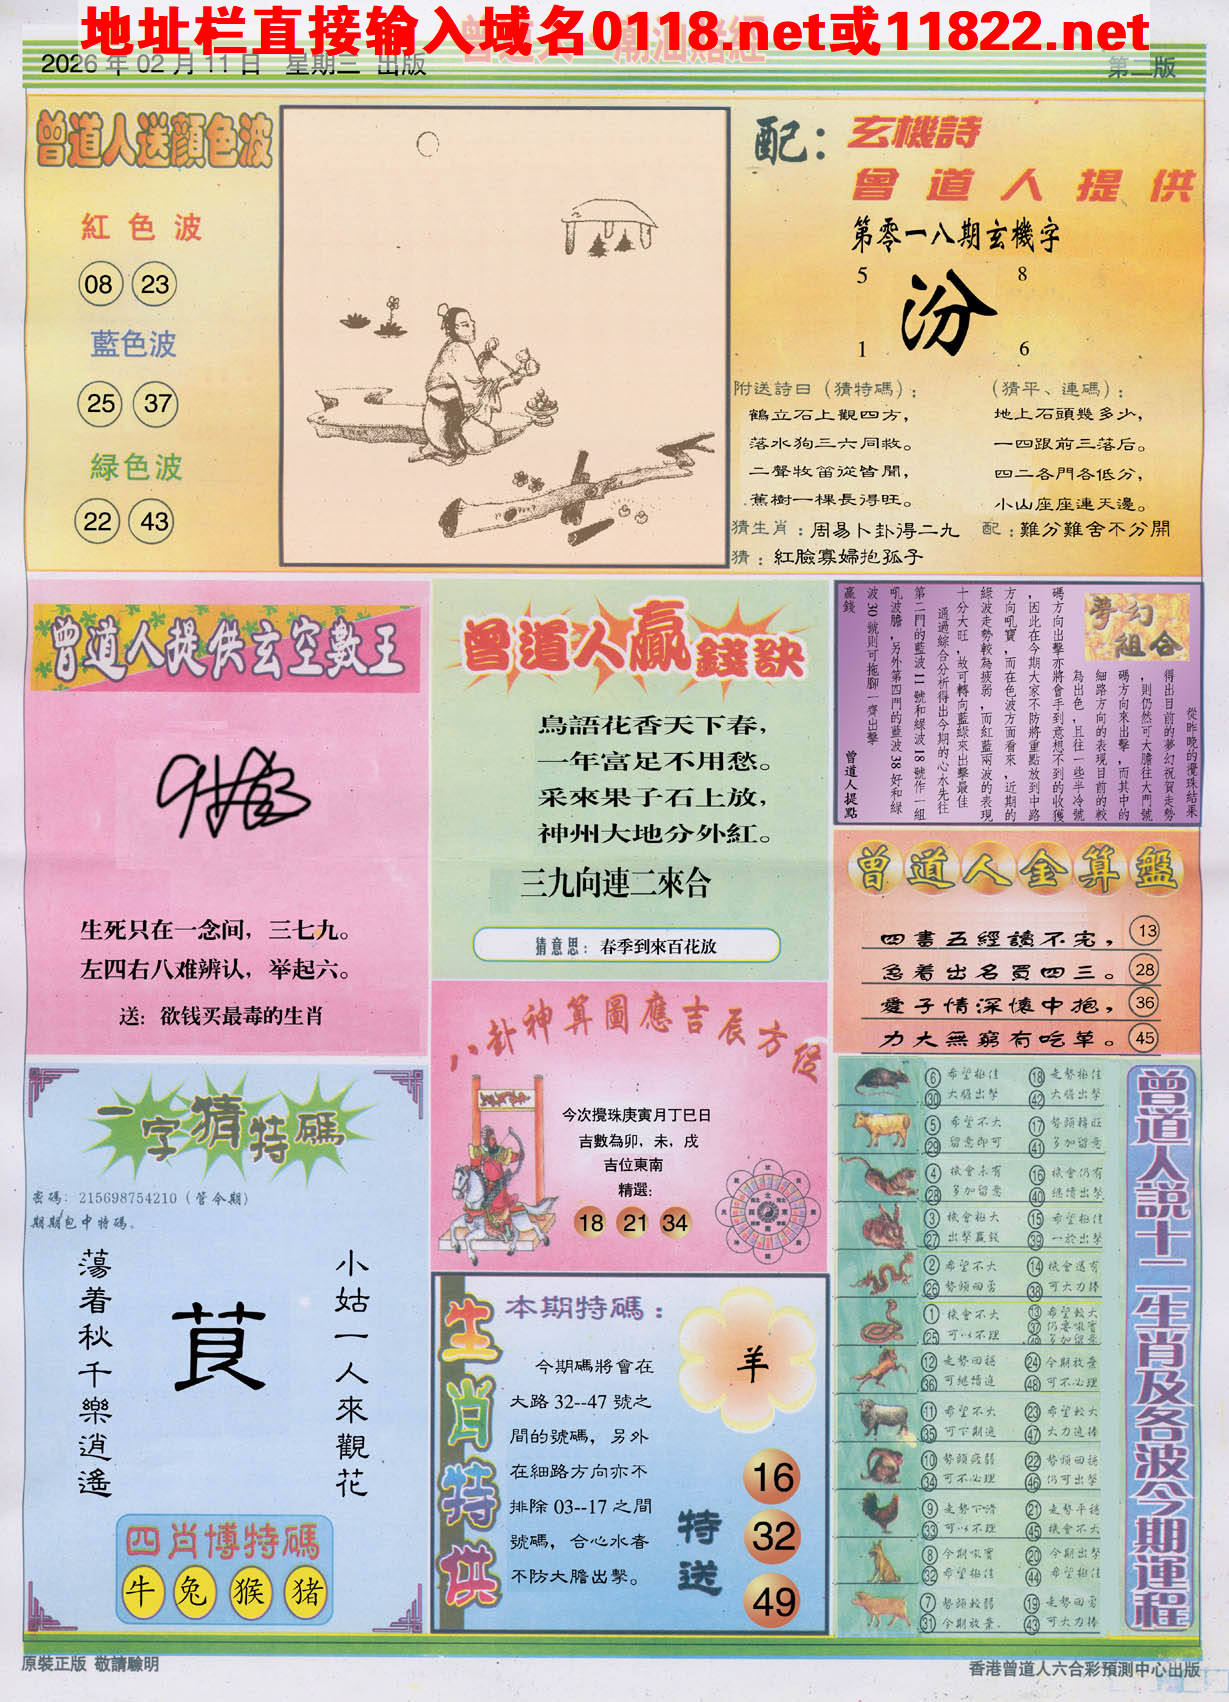 地址栏直接输入域名0118.net或11822.net
2026 年 02 月 11 日 星期三 出版
第二版
曾道人送顏色波
紅色波
08 23
藍色波
25 37
緑色波
22 43
配：玄機詩
曾道人提供
第零一八期玄機字
5 8
汾
1 6
附送詩曰（猜特碼）：
鶴立石上觀四方，
落水狗三六同救。
二聲牧笛從皆聞，
蕉樹一棵長得旺。
（猜平、連碼）：
地上石頭幾多少，
一四跟前三落后。
四二各門各低分，
小山座座連天邊。
猜生肖：周易卜卦得二九
配：難分難舍不分開
猜：紅臉寡婦抱孤子
曾道人提供玄空數王
生死只在一念间，三七九。
左四右八难辨认，举起六。
送：欲钱买最毒的生肖
曾道人贏錢訣
鳥語花香天下春，
一年富足不用愁。
采來果子石上放，
神州大地分外紅。
三九向連二來合
猜意思：春季到來百花放
夢幻
組合
從昨晚的攪珠結果
得出目前的夢幻祝賀走勢
，則仍然可大膽往大門號
碼方向來出擊，而其中的
細路方向的表現目前的較
為出色，且往一些半冷號
碼方向出擊亦將會手到意想不到的收獲
，因此在今期大家不防將重點放到中路
方向吼寶，而在色波方面看來，近期的
綠波走勢較為疲弱，而紅藍兩波的表現
十分大旺，故可轉向藍綠來出擊最佳
通過綜合分析得出今期的心水先往
第二門的藍波 11 號和綠波 18 號作一組
吼波膽，另外第四門的藍波 38 好和綠
波 30 號則可拖腳一齊出擊
贏錢
曾道人提點
曾道人金算盤
四書五經讀不完， 13
急着出名買四三。 28
愛子情深懷中抱， 36
力大無窮有吃草。 45
八卦神算圖應吉辰方位
今次攪珠庚寅月丁巳日
吉數為卯，未，戌
吉位東南
精選：
18 21 34
一字猜特碼
密碼：215698754210（管今期）
期期包中特碼。
小姑一人來觀花
茛
蕩着秋千樂逍遙
四肖博特碼
牛 兔 猴 猪
生肖特供
本期特碼：
今期碼將會在
大路 32--47 號之
間的號碼，另外
在細路方向亦不
排除 03--17 之間
號碼，合心水者
不防大膽出擊。
羊
特送
16
32
49
曾道人說十二生肖及各波今期運程
6 希望極佳 18 走勢極佳
30 大膽出擊 42 大膽出擊
5 希望不大 17 勢頭轉旺
29 留意即可 41 多加留意
4 機會未有 16 機會仍有
28 多加留意 40 繼續出擊
3 機會極大 15 希望極佳
27 出擊贏錢 39 一於出擊
2 希望不大 14 機會還有
26 勢頭回勇 38 可大力捧
1 機會不大 13 希望較大
25 可以不理 37 仍要吼實
多加留意
12 走勢回穩 24 今期放棄
36 可繼續追 48 可不必理
11 希望不大 23 希望較大
35 可下期追 47 大力追捧
10 勢頭疲弱 22 勢頭回穩
34 可不必理 46 仍可出擊
9 走勢下滑 21 走勢平穩
33 可以不理 45 機會不大
8 今期吼實 20 今期出擊
32 希望極佳 44 希望極佳
7 勢頭較弱 19 走勢回勇
31 今期放棄 43 可大力捧
原裝正版 敬請驗明
香港曾道人六合彩預測中心出版